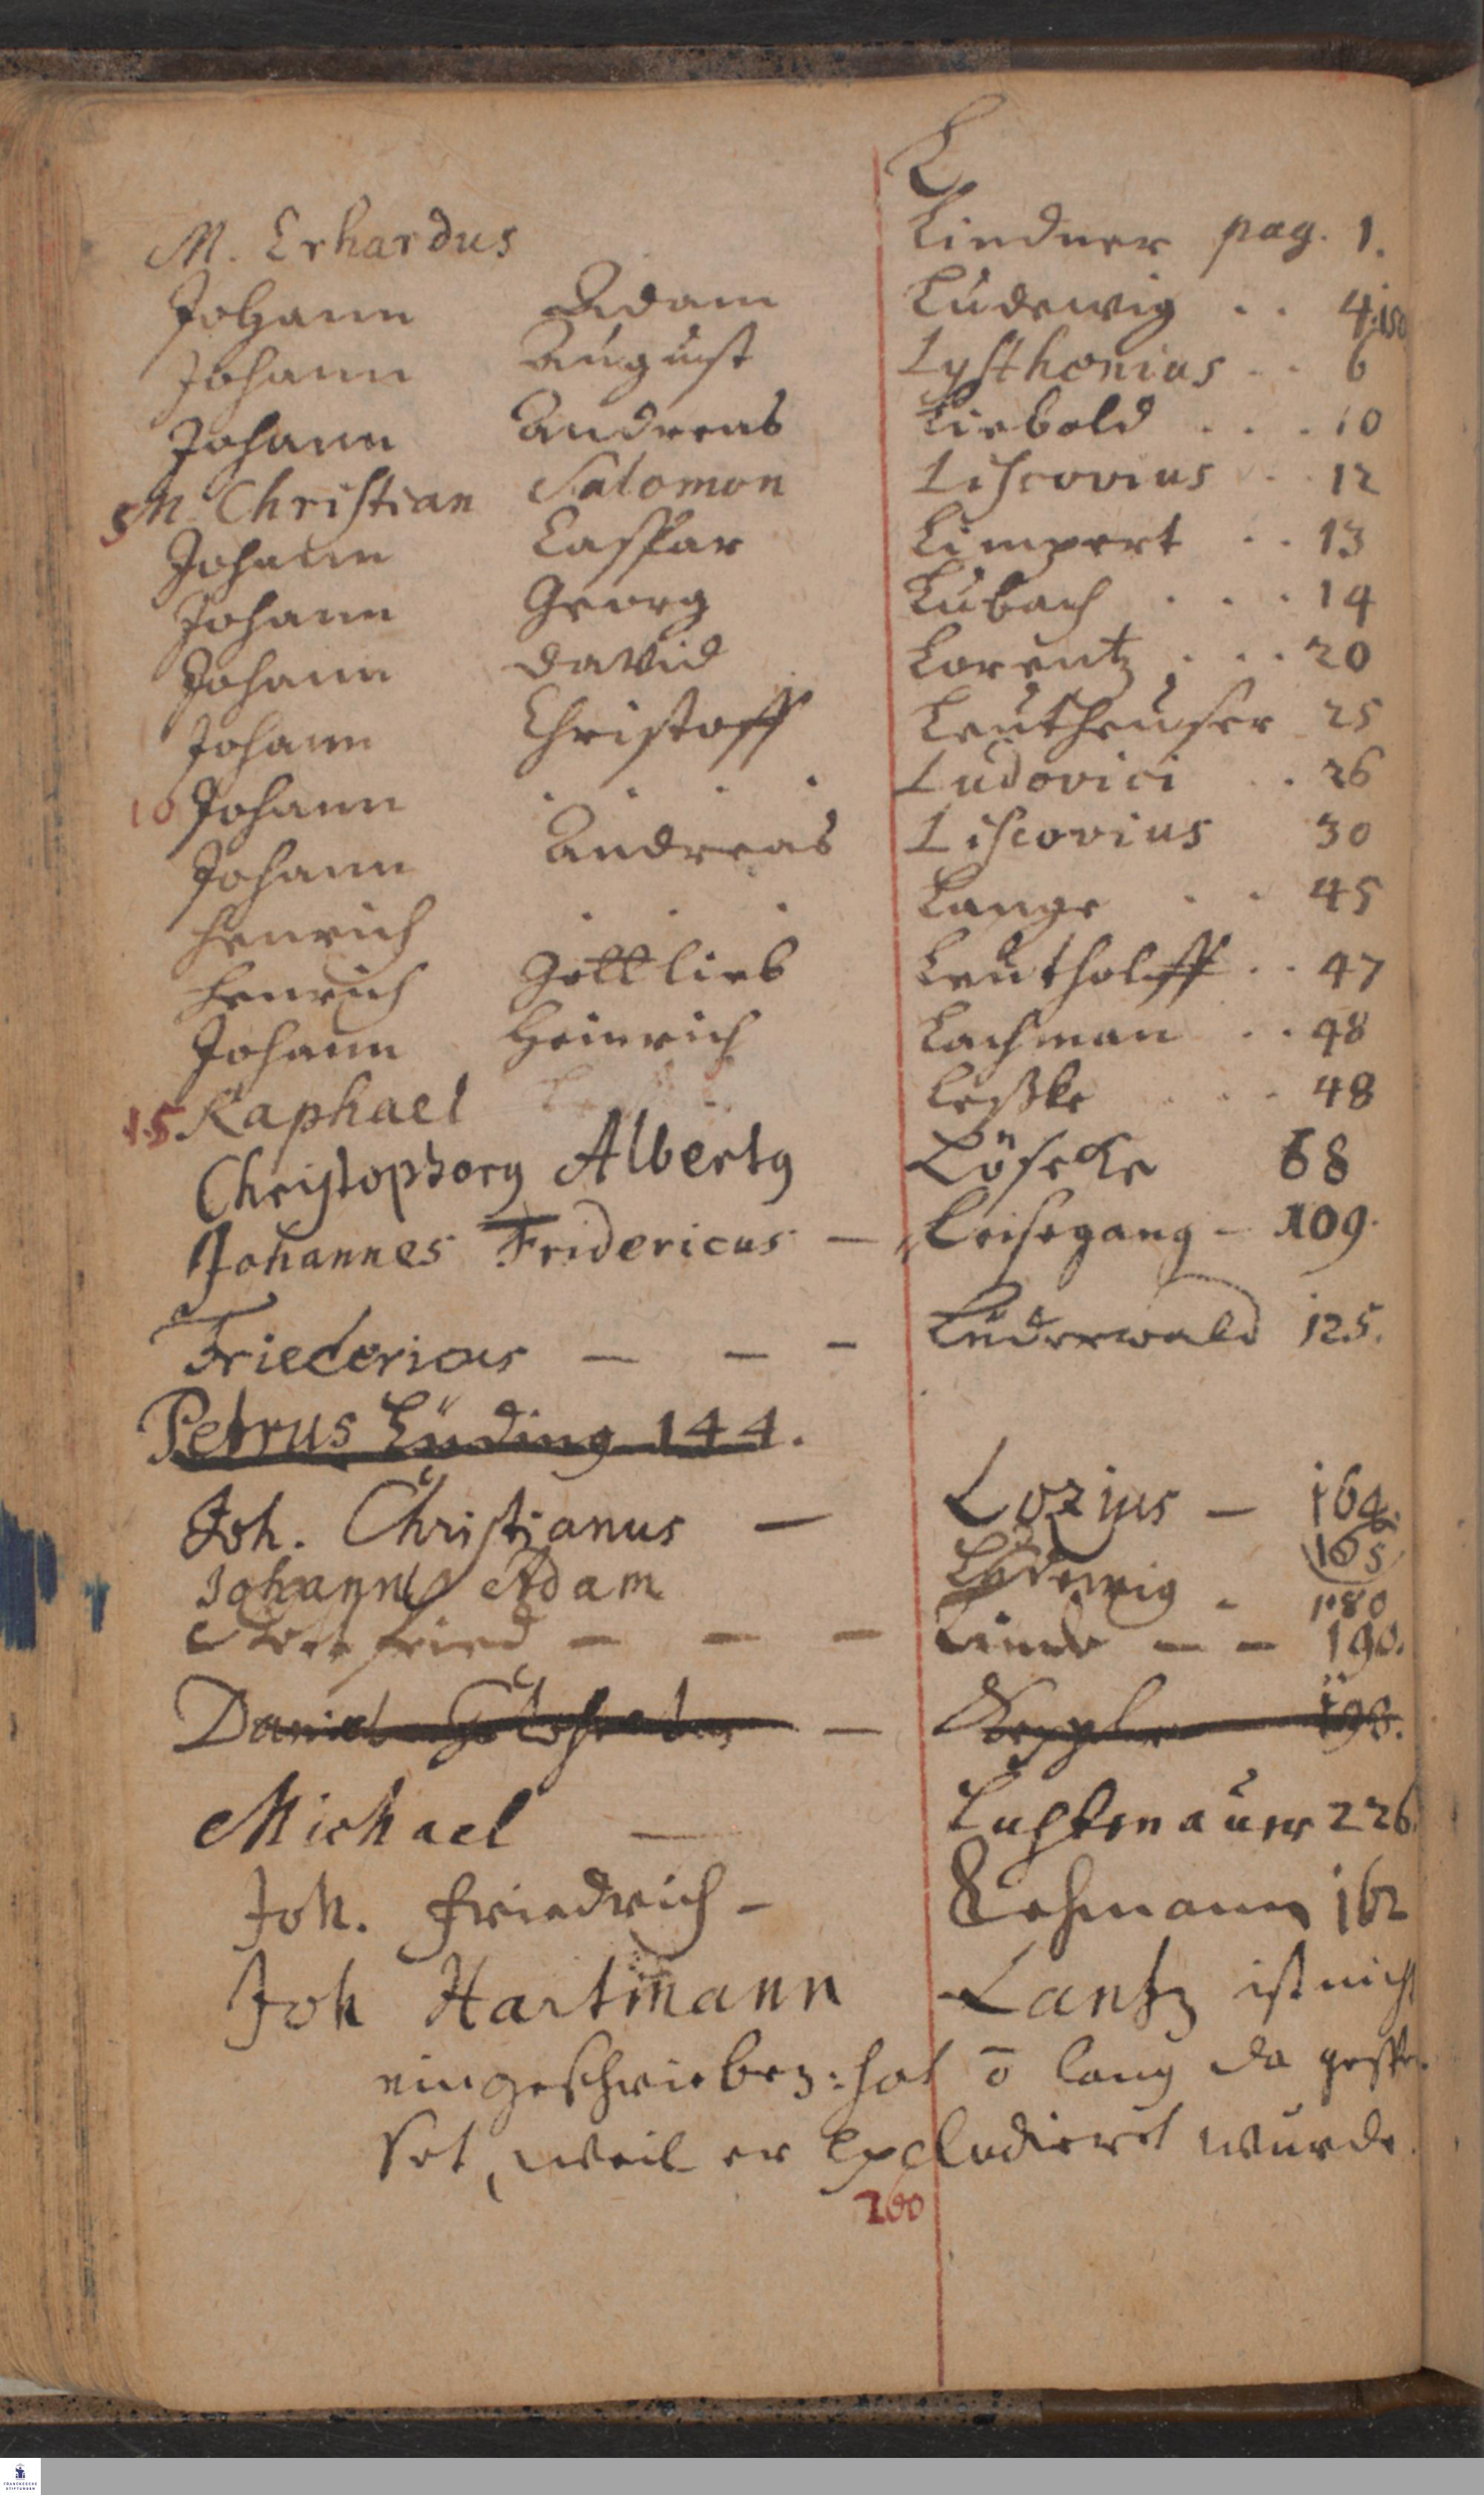 L
M. Erhardus Lindner pag. 1.
Johann Adam Ludewig . . 4. 180
Johann August Lysthenius . . 6
Johann Andreas Liebold . . . 10
5 M. Christian Salomon Liscovius . . 12
Johann Casspar Limpert . . 13
Johann Georg Lubach . . . 14
Johann David Lorentz . . . 20
Johann Christoff Leutheuser 25
10 Johann . . . . Ludovici . . 26
Johann Andreas Liscovius 30
Henrich . . . Lange . . 45
Henrich Gottlieb Leutholff . . 47
Johann Heinrich Lachman . . 48
15 Raphael Leßke . . . 48
Christophorg Albertg Löseke 68
Johannes Fridericus — Leisegang — 109.
Friedericus — — — Lüderwald 125.
Petrus Lüding 144.
Joh. Christianus — Lozius — 164.
165
Johann Adam Ludewig . 180
fried — — — Linde — — 190.
Daniel — 198.
Michael — Luchtenauer 226.
Joh. Friedrich — Lehmann 162
Joh Hartmann Lantz ist nicht
eingeschrieben: hat ō lang da gespei-
set, weil er excludieret wurde.
260
FRANCKESCHE STIFTUNGEN